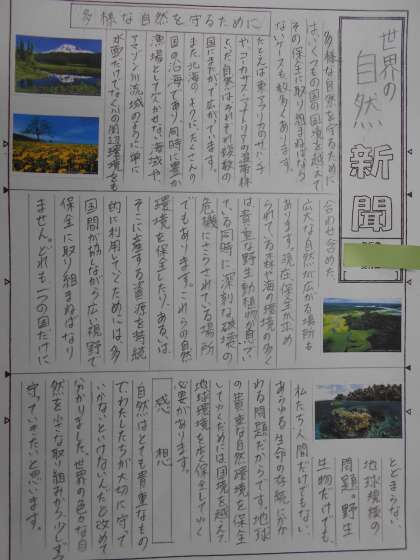 世界の
自然
新聞
多様な自然を守るために
多様な自然を守るために
はいくつもの国の国境を越えて
その保全に取り組まねばなら
ないケースも数多くあります。
たとえば東アフリカのサバンナ
の自然はそれぞれ複数の
国にまたがって広がっています。
また北海も、たくさんの
国の沿海であり、同時に豊かな
漁場として欠かせぬ、海域や、
アマゾン川流域のように単に
水面だけでなく川の周辺環境をも
合わせ含めた、
広大な自然が広がる場所も
あります。現在保全が求め
られている森や海の環境の多く
は貴重な野生動植物が息づい
ている同時に深刻な破壊の
危機にさらされている場所
でもあります。これらの自然
環境を保全したり、あるいは
そこに産する資源を持続
的に利用していくためには、多
国間が協ながら広い視野で
保全に取り組まねばなり
ません。どれも一つの国だけに
とどまらない
地球環境の
問題。野生
生物だけでも、
私たち人間だけでもない、
あらゆる生命の存続にかか
わる問題だからです。地球
の貴重な自然環境を保全
していくためには国境を越えて
地球環境を広く保全していく
必要があります。
感想
自然はとても貴重なもの
でわたしたちが大切に守って
いかないといけないんだと改めて
分かりました。世界の色々な自
然を小さな取り組みから少しずつ
守っていきたいと思います。